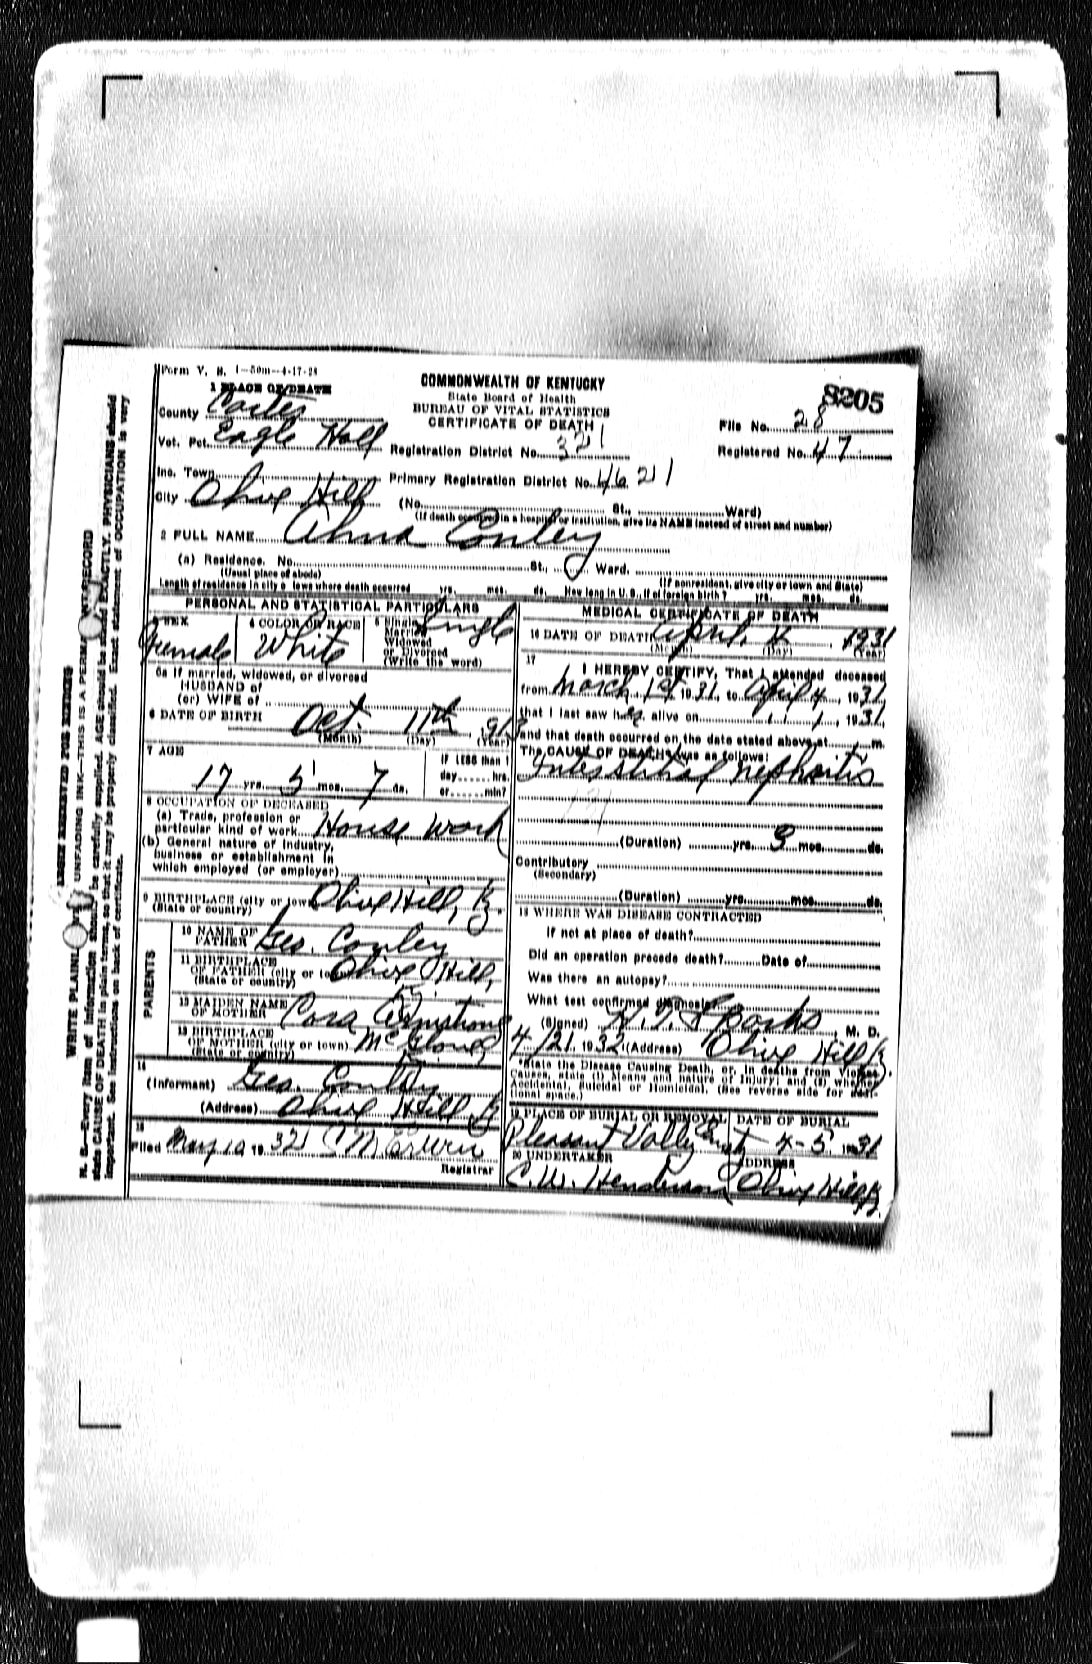 Form V. S. 1-50m-4-17-28
8205
1 PLACE OF DEATH
COMMONWEALTH OF KENTUCKY
State Board of Health
BUREAU OF VITAL STATISTICS
CERTIFICATE OF DEATH
County Carter
File No. 28
Vot. Pct. Eagle Hall
Registration District No. 321
Registered No. 47
Inc. Town
Primary Registration District No. 4621
City Olive Hill (No. St., Ward)
(If death occurred in a hospital or institution, give its NAME instead of street and number)
2 FULL NAME Conley
(a) Residence. No. St., Ward.
(Usual place of abode) (If nonresident, give city or town and State)
Length of residence in city or town where death occurred yrs. mos. ds. How long in U. S., if of foreign birth? yrs. mos. ds.
PERSONAL AND STATISTICAL PARTICULARS
3 SEX
Female
4 COLOR OR RACE
White
5 Single
Married
Widowed
or Divorced
(Write the word)
Single
5a If married, widowed, or divorced
HUSBAND of
(or) WIFE of
6 DATE OF BIRTH Oct. 11th, 913
(Month) (Day) (Year)
7 AGE
17 yrs. 5 mos. 7 ds.
IF LESS than 1
day hrs.
or min?
8 OCCUPATION OF DECEASED
(a) Trade, profession or
particular kind of work House Work
(b) General nature of industry,
business or establishment in
which employed (or employer)
9 BIRTHPLACE (city or town) Olive Hill, Ky.
(State or country)
PARENTS
10 NAME OF
FATHER Geo. Conley
11 BIRTHPLACE
OF FATHER (city or town) Olive Hill,
(State or country)
12 MAIDEN NAME
OF MOTHER Cora Armstrong
13 BIRTHPLACE
OF MOTHER (city or town) McGlone
(State or country)
14
(Informant) Geo. Conley
(Address) Olive Hill Ky
15
Filed May 10 1932 C M
Registrar
MEDICAL CERTIFICATE OF DEATH
16 DATE OF DEATH April 1931
(Month) (Day) (Year)
17
I HEREBY CERTIFY, That I attended deceased
from March 1st, 1931, to April 4, 1931
that I last saw her alive on , 1931,
and that death occurred on the date stated above at m.
The CAUSE OF DEATH was as follows:
Interstitial Nephritis
131
(Duration) yrs. 3 mos. ds.
Contributory
(Secondary)
(Duration) yrs. mos. ds.
18 WHERE WAS DISEASE CONTRACTED
If not at place of death?
Did an operation precede death? Date of
Was there an autopsy?
What test confirmed diagnosis
(Signed) Sparks, M. D.
4/21, 1932 (Address) Olive Hill Ky
*State the Disease Causing Death, or, in deaths from Violent
Causes, state (1) Means and nature of Injury; and (2) whether
Accidental, Suicidal or Homicidal. (See reverse side for addi-
tional space.)
19 PLACE OF BURIAL OR REMOVAL
Pleasant Valley
DATE OF BURIAL
4-5, 1931
20 UNDERTAKER
C. W. Henderson
ADDRESS
Olive Hill Ky.
LEFT RESERVED FOR BINDING
WRITE PLAINLY UNFADING INK—THIS IS A PERMANENT RECORD
N. B.—Every item of information should be carefully supplied. AGE should be stated EXACTLY. PHYSICIANS should
state CAUSE OF DEATH in plain terms, so that it may be properly classified. Exact statement of OCCUPATION is very
important. See instructions on back of certificate.